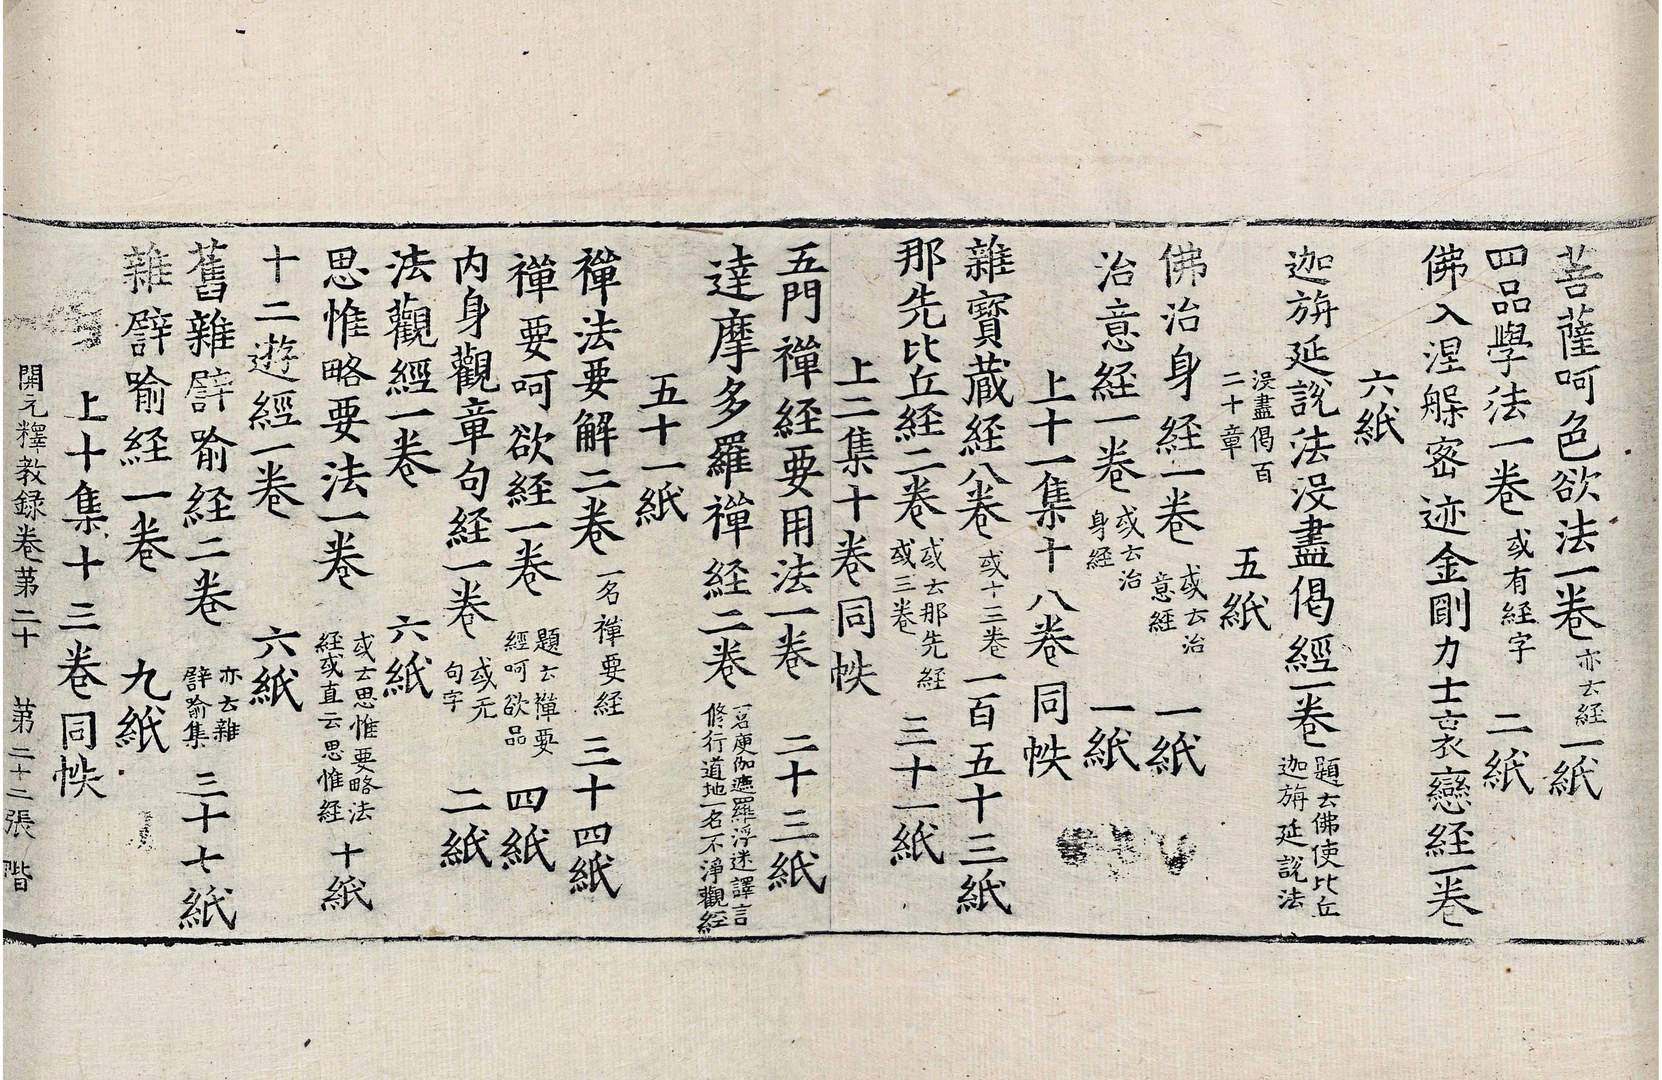 菩薩呵色欲法一卷亦云經一紙
四品學法一卷或有経字　二紙
佛入涅槃密迹金剛力士哀戀経一卷
六紙
迦旃延說法没盡偈經一卷題云佛使比丘迦旃延說法
没盡偈百二十章　五紙
佛治身経一卷或云治意経　一紙
治意経一卷或云治身經　一紙
上十一集十八卷同帙
雜寶藏経八卷或十三卷一百五十三紙
那先比丘経二卷或云那先経或三卷　三十一紙
上二集十卷同帙
五門禪経要用法一卷　二十三紙
達摩多羅禪経二卷一名庾伽遮羅浮迷譯言修行道地一名不淨觀經
五十一紙
禪法要解二卷一名禪要経　三十四紙
禪要呵欲経一卷題云禪要經呵欲品　四紙
内身觀章句経一卷或无句字　二紙
法觀經一卷　六紙
思惟略要法一卷或云思惟要略法経或直云思惟経　十紙
十二遊經一卷　六紙
舊雜譬喻経二卷亦云雜譬喻集　三十七紙
雜譬喻経一卷　九紙
上十集十三卷同帙
開元釋教錄卷第二十　第二十二張　階